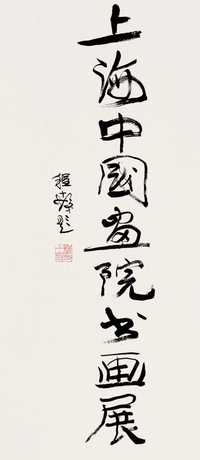 上海中國畫院书画展
程十髪题